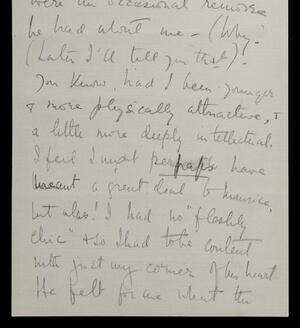 were an occasional remorse
he had about me – (Why?
(Later I'll tell you that).
You know, had I been younger
& more physically attractive, &
a little more deeply intellectual,
I feel I might perhaps have
meant a great deal to Maurice,
but alas! I had no "fleshly
chic" & so I had to be content
with just my corner of his heart.
He felt for me what the